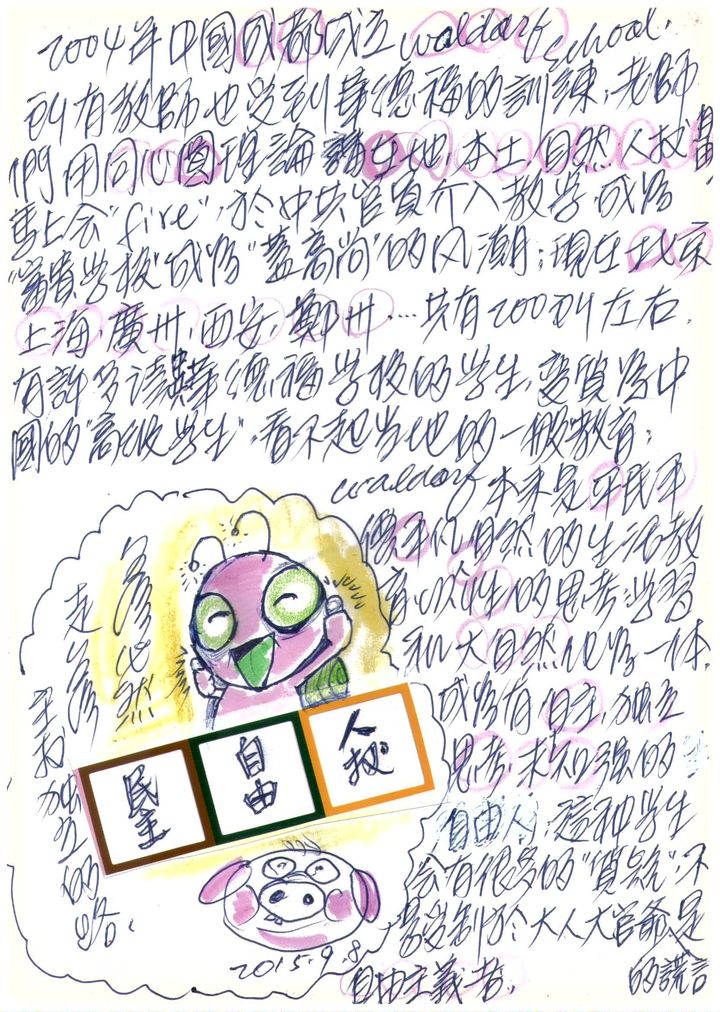 2004年中國成都成立waldorf school.
所有教師也受到華德福的訓練,老師
們用同心圓理論 在地,本土,自然,人权自由
馬上会"fire",於中共官員介入教学,成為
"富貴学校"成為"蓋高尚"的风潮;現在北京
上海,廣州,西安,鄭州....共有200所左右.
有許多读華德福学校的学生,變質為中
國的"高級学生",看不起当地的一般教育;
waldorf本來是平民平
凡自然的生活教
育以 性的思考学習
和大自然化為一体,
成為有自主,独立
思考,求知强的
自由人,這种学生
会有很多的"質疑"不
易受制於大人大官 是
自由主義者. 的謊言
必然
走
独立的
路.
民主
自由
人权
2015.9.8